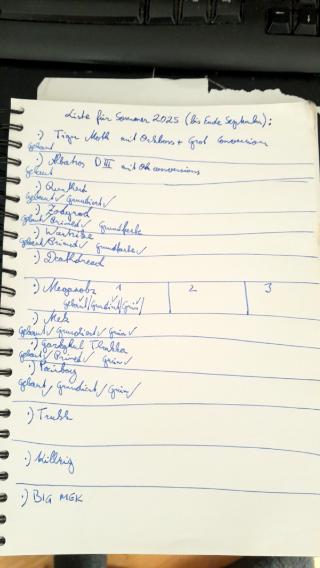 Liste für Sommer 2025 (bis Ende September):
·) Tiger Moth mit Orkboss + Grot Conversion
gebaut
·) Albatros D III mit Ork conversions
gebaut
gebaut✓ Grundiert✓
·) Zodgrod
gebaut✓ Primed✓ Grundfarbe
·) Wartrike
gebaut Primed✓ grundfarbe✓
·) Deathdread
·) Meganobz 1 2 3
gebaut/grundiert/Grün
·) Mek
gebaut✓ Grundiert✓ Grün✓
·) Gazbkul Thakka
gebaut✓ Primed✓ Grün✓
·) Painboy
gebaut✓ Grundiert✓ Grün✓
·) Trukk
·) Killrig
·) BIG MEK